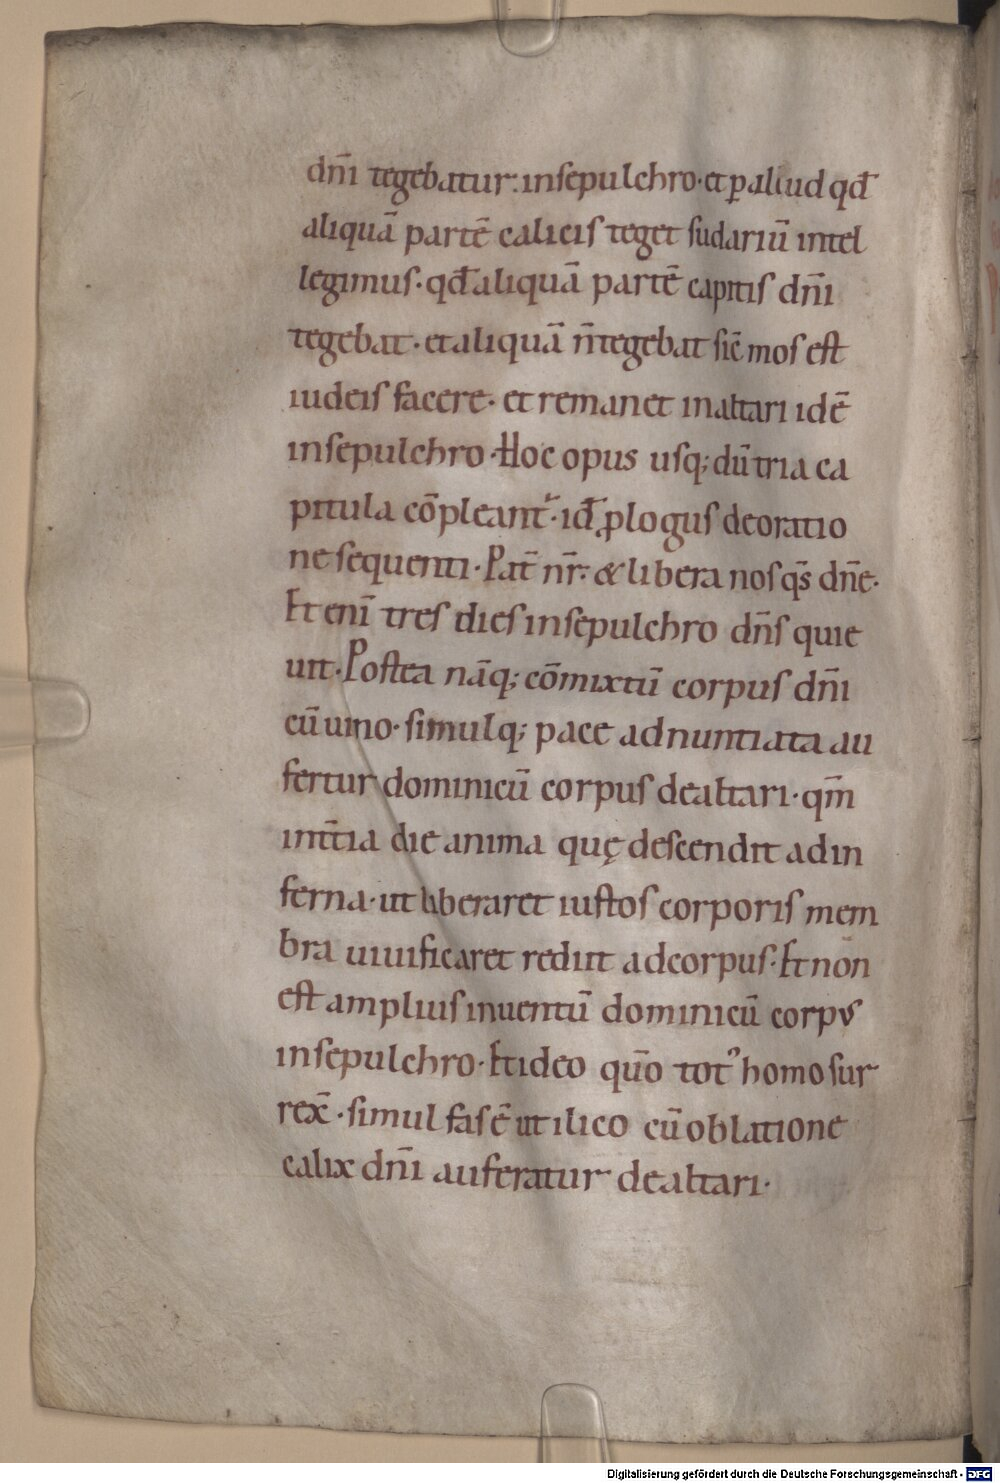 dñi tegebatur: insepulchro· et ꝑ aliud qđ
aliquā partē calicis teget sudariū intel
legimus· qđ aliquā partē capitis dñi
tegebat· et aliquā ñ tegebat sic̄ mos est
iudeis facere· et remanet in altari idē
insepulchro· Hoc opus usq; dū tria ca
pitula cōpleant᷑· id ꝓlogus deoratio
ne sequenti· Pat̄ nr̄: & libera nos qs̄ dñe·
Et enī tres dies insepulchro dñs quie
uit· Postea nāq; cōmixtū corpus dñi
cū uino· simulq; pace adnuntiata au
fertur dominicū corpus dealtari· qm̄
int̄tia die anima quę descendit adin
ferna· ut liberaret iustos corporis mem
bra uiuificaret rediit adcorpus· Et non
est amplius inuentū dominicū corpus
insepulchro· Et ideo quō totꝰ homo sur
rex̄· simul fas ē ut ilico cū oblatione
calix dñi auferatur dealtari·
Digitalisierung gefördert durch die Deutsche Forschungsgemeinschaft - DFG